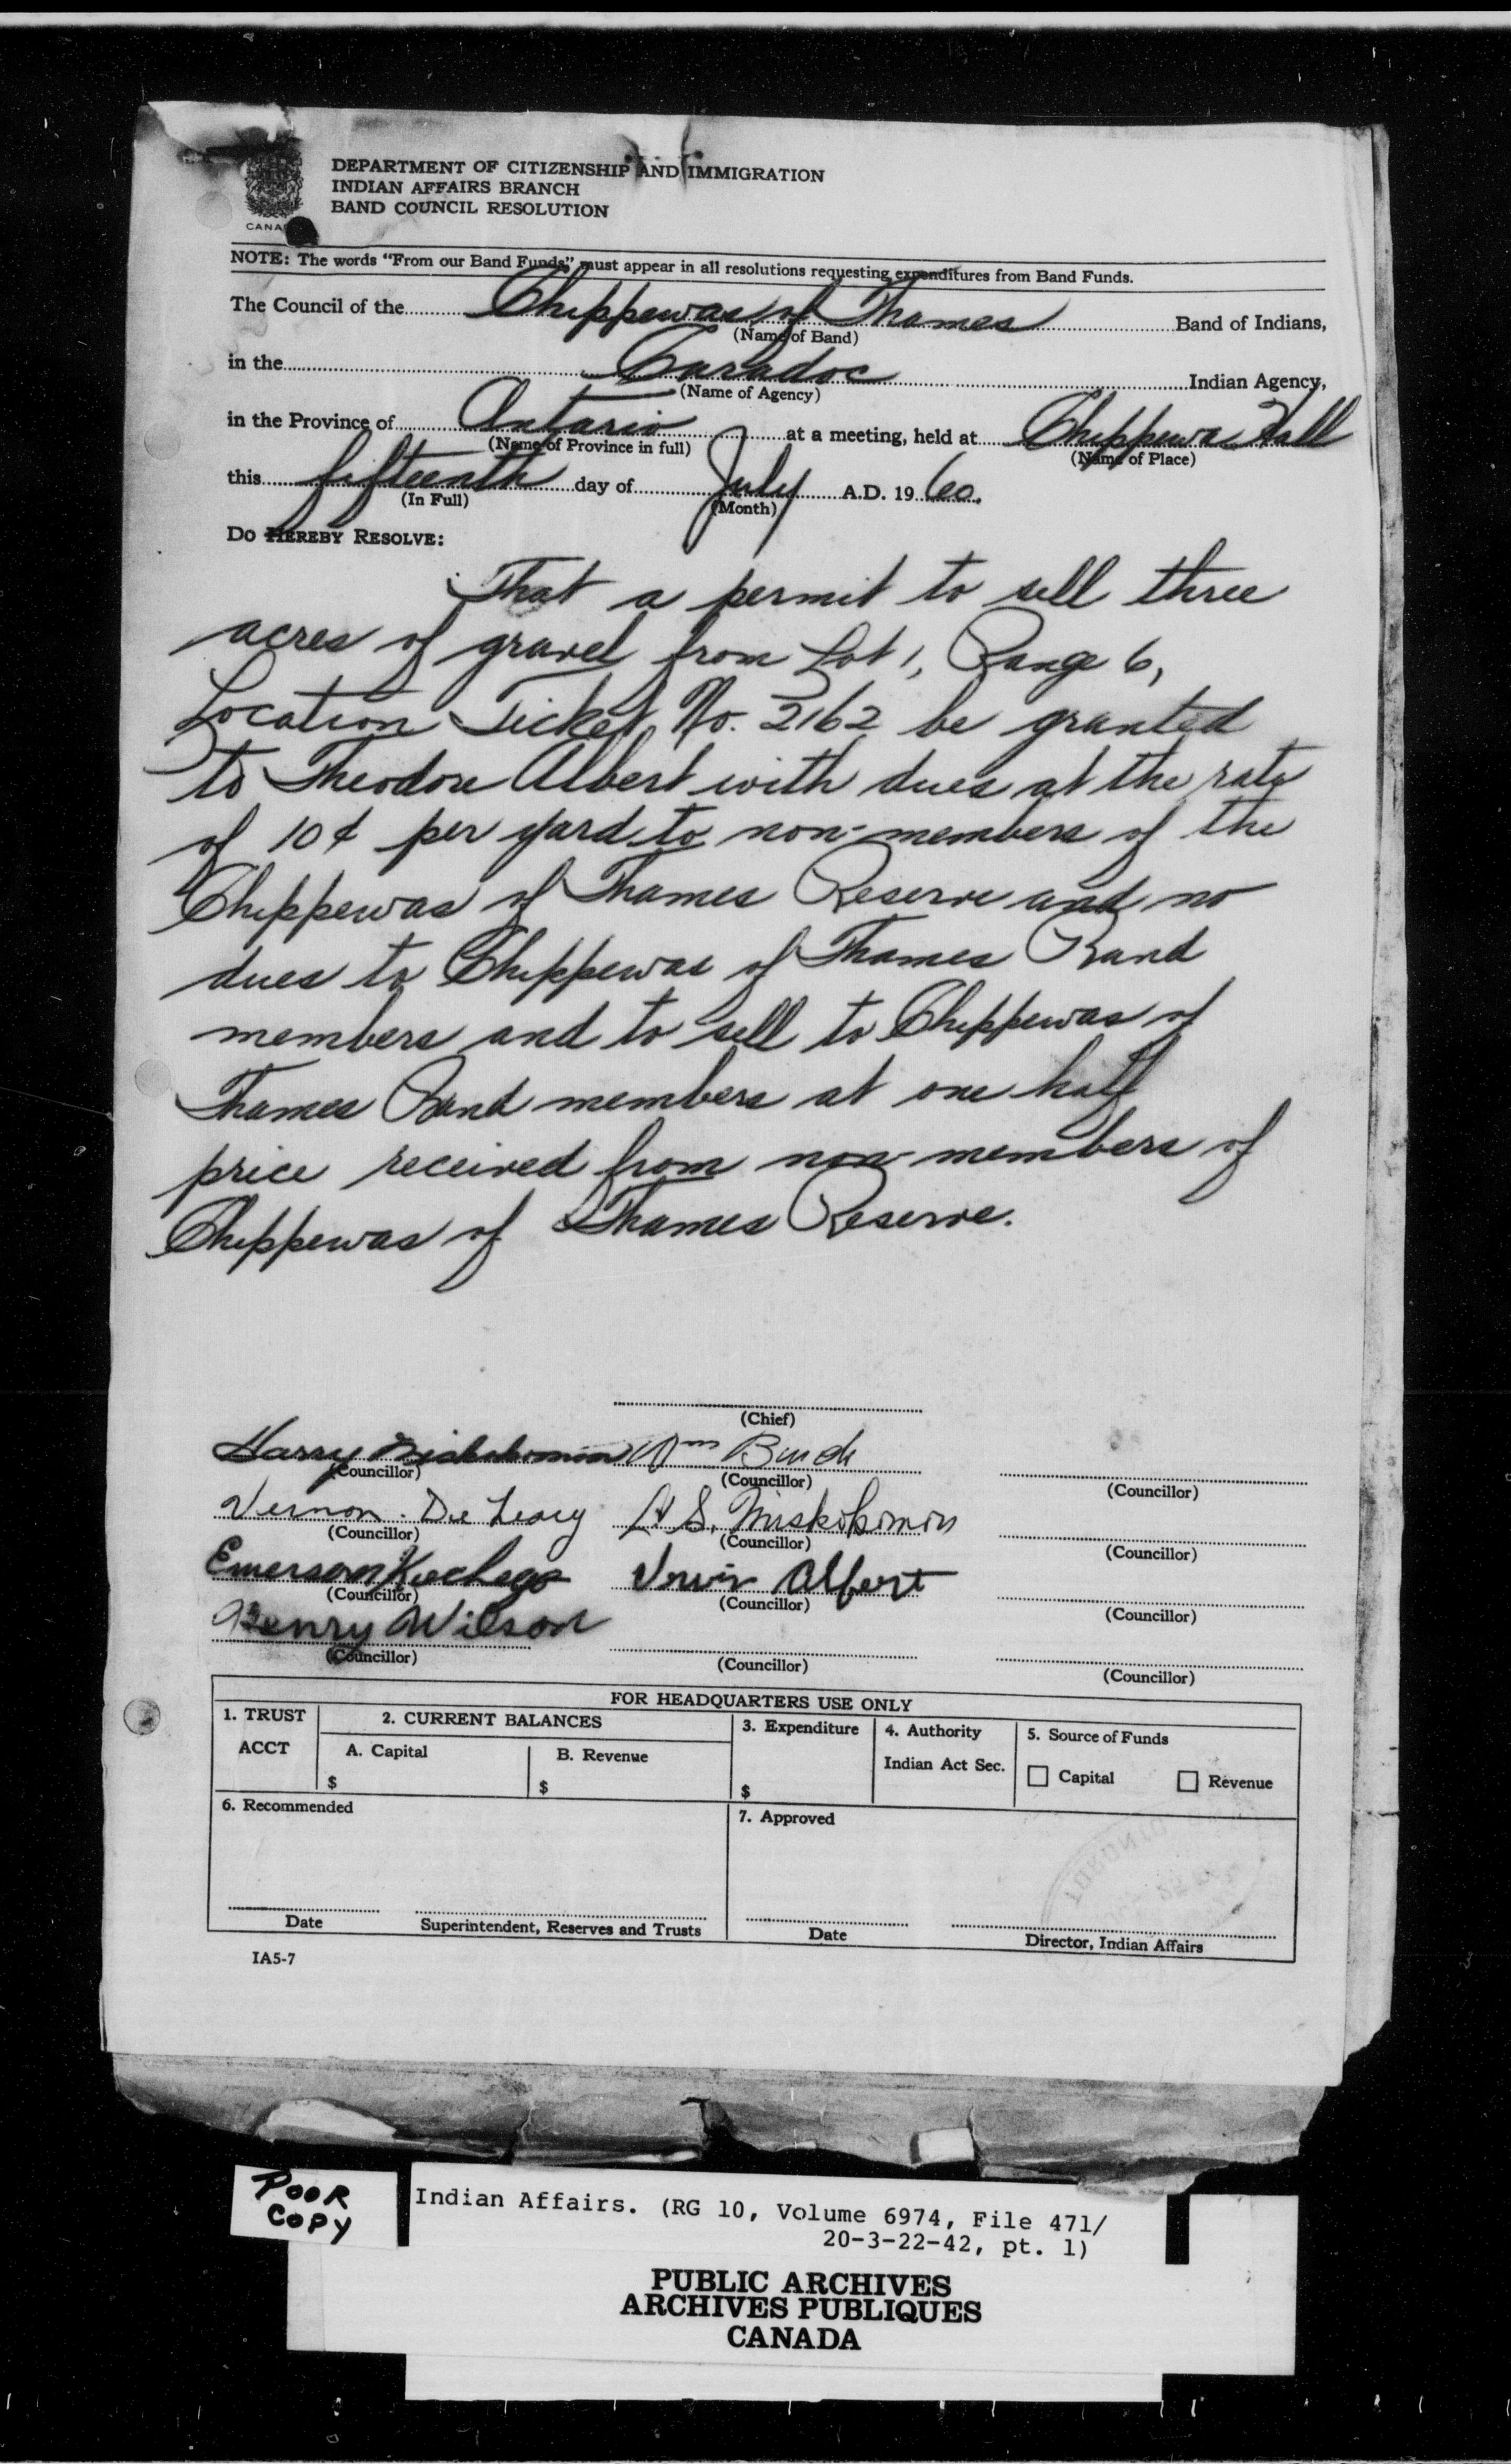 CANA
DEPARTMENT OF CITIZENSHIP AND IMMIGRATION
INDIAN AFFAIRS BRANCH
BAND COUNCIL RESOLUTION
NOTE: The words "From our Band Funds" must appear in all resolutions requesting expenditures from Band Funds.
The Council of the Chippewas of Thames Band of Indians,
(Name of Band)
in the Caradoc Indian Agency,
(Name of Agency)
in the Province of Ontario at a meeting, held at Chippewa Hall
(Name of Province in full) (Name of Place)
this fifteenth day of July A.D. 19 60.
(In Full) (Month)
DO HEREBY RESOLVE:
That a permit to sell three
acres of gravel from Lot 1, Range 6,
Location Ticket No. 3162 be granted
to Theodore Albert with dues at the rate
of 10¢ per yard to non-members of the
Chippewas of Thames Reserve and no
dues to Chippewas of Thames Band
members and to sell to Chippewas of
Thames Band members at one half
price received from non-members of
Chippewas of Thames Reserve.
(Chief)
Harry Miskokomon Wm
(Councillor) (Councillor) (Councillor)
Vernon. De Leary H S. Miskokomon
(Councillor) (Councillor) (Councillor)
Emerson Kechego Irvin Albert
(Councillor) (Councillor) (Councillor)
Henry Wilson
(Councillor) (Councillor) (Councillor)
FOR HEADQUARTERS USE ONLY
1. TRUST ACCT
2. CURRENT BALANCES
A. Capital
$
B. Revenue
$
3. Expenditure
$
4. Authority
Indian Act Sec.
5. Source of Funds
Capital Revenue
6. Recommended
Date Superintendent, Reserves and Trusts
7. Approved
TORONTO
Date Director, Indian Affairs
IA5-7
POOR
COPY
Indian Affairs. (RG 10, Volume 6974, File 471/
20-3-22-42, pt. 1)
PUBLIC ARCHIVES
ARCHIVES PUBLIQUES
CANADA